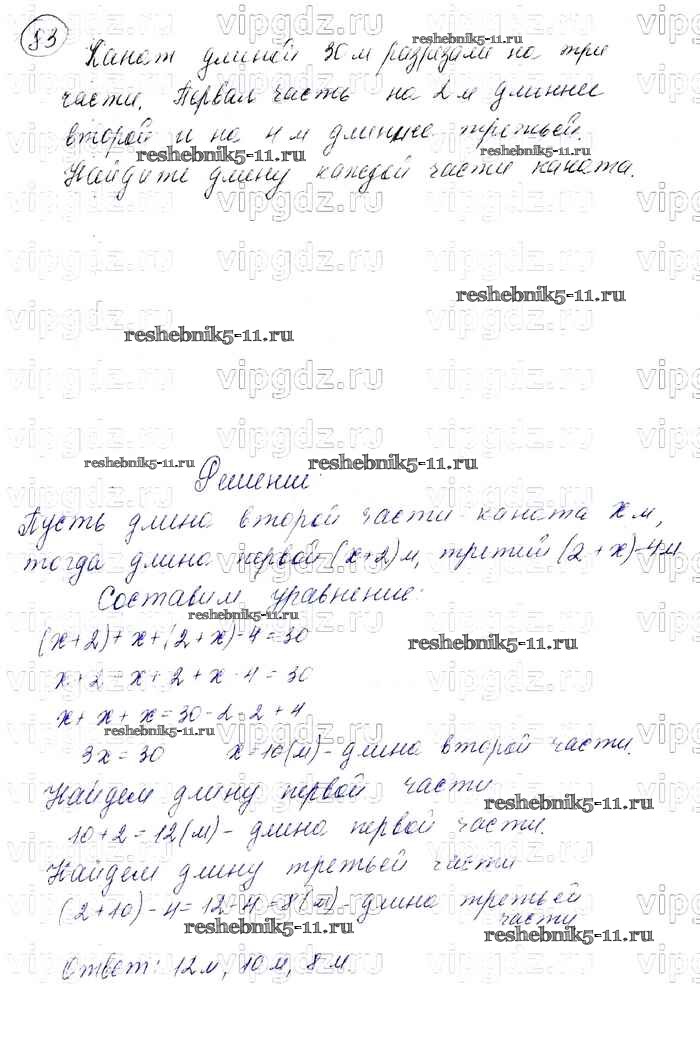 83
Канат длиной 30 м разрезали на три
части. Первая часть на 2 м длиннее
второй и на 4 м длиннее третьей.
Найдите длину каждой части каната.
Решение:
Пусть длина второй части каната x м,
тогда длина первой (x+2) м, третий (2+x)-4 м
Составим уравнение:
(x+2)+x+(2+x)-4=30
x+2+x+2+x-4=30
x+x+x=30-2-2+4
3x=30 x=10(м) - длина второй части.
Найдем длину первой части
10+2=12(м) - длина первой части.
Найдем длину третьей части
(2+10)-4=12-4=8(м) - длина третьей
части
Ответ: 12м, 10м, 8м.
reshebnik5-11.ru
vipgdz.ru